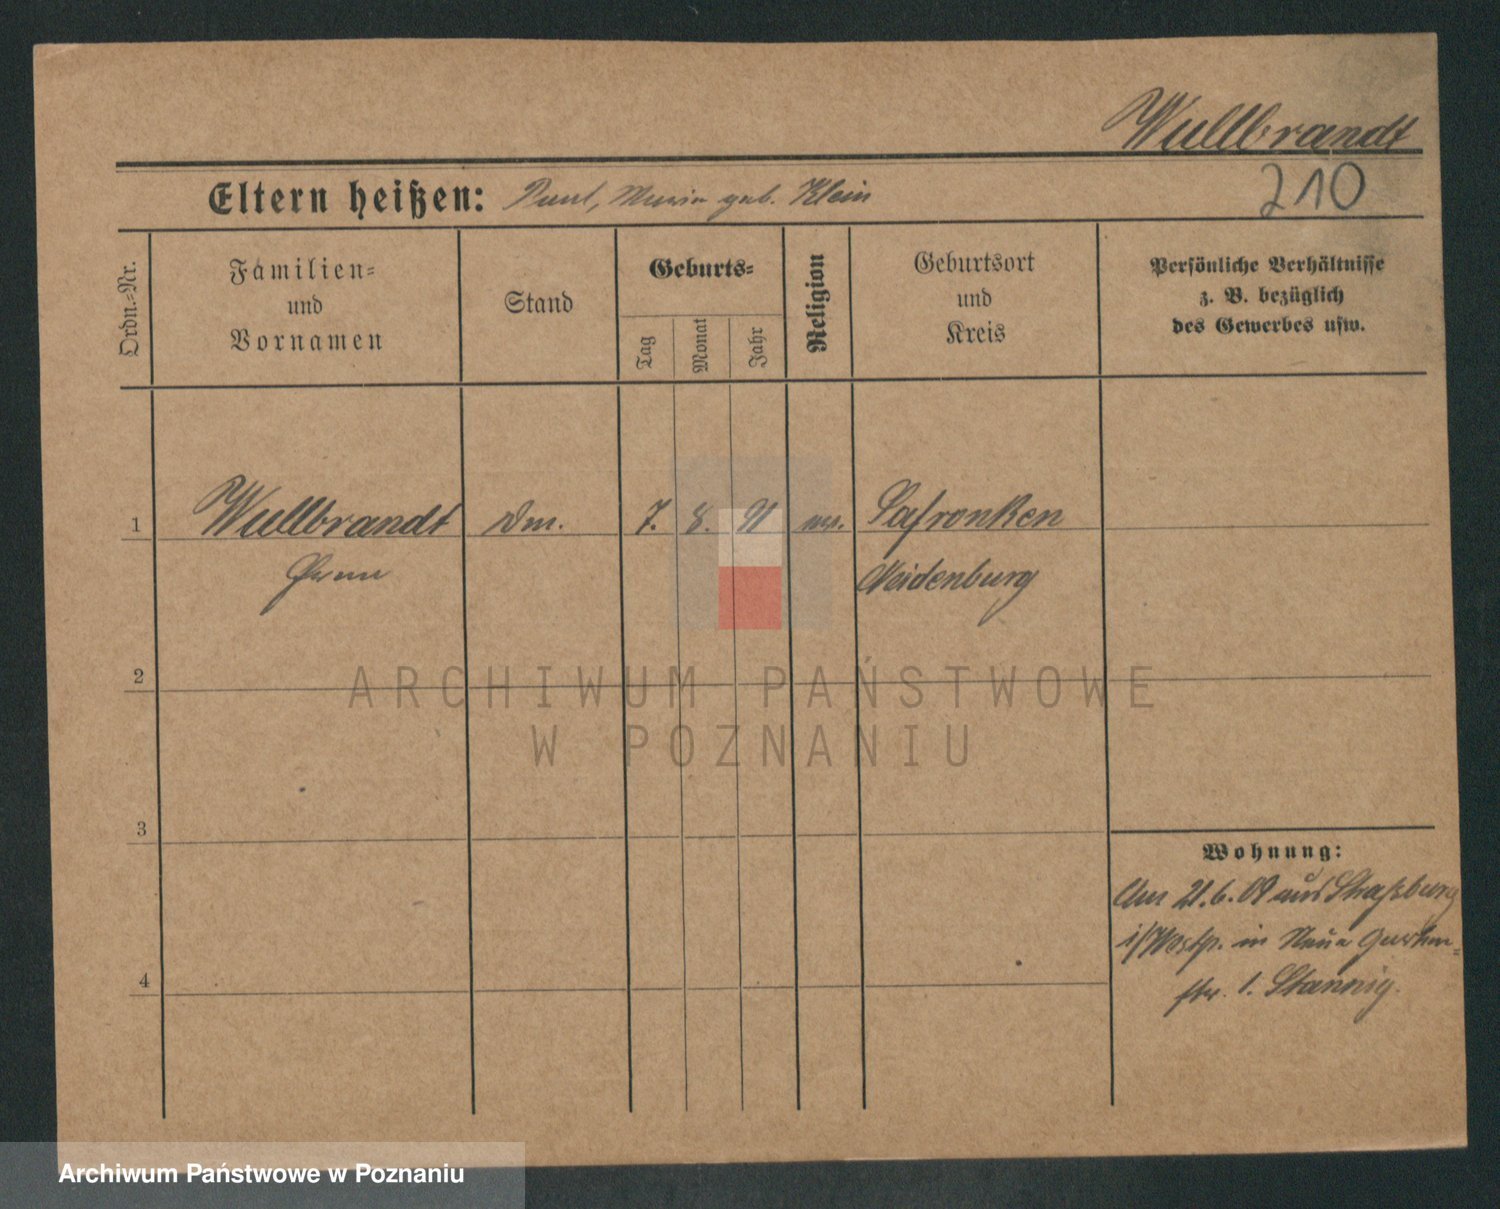 Wullbrandt
Eltern heißen: Paul, Maria geb. Klein
210
Ordn.=Nr.
Familien=
und
Vornamen
Stand
Geburts=
Tag
Monat
Jahr
Religion
Geburtsort
und
Kreis
Persönliche Verhältnisse
z. B. bezüglich
des Gewerbes usw.
1 Wullbrandt 7. 8. 91 Safronken
Neidenburg
2
3
4
Wohnung:
Am 21.6.09 aus Straßburg
i/Westp. in Neue Garten=
str. 1. Stannig.
ARCHIWUM PAŃSTWOWE
W POZNANIU
Archiwum Państwowe w Poznaniu